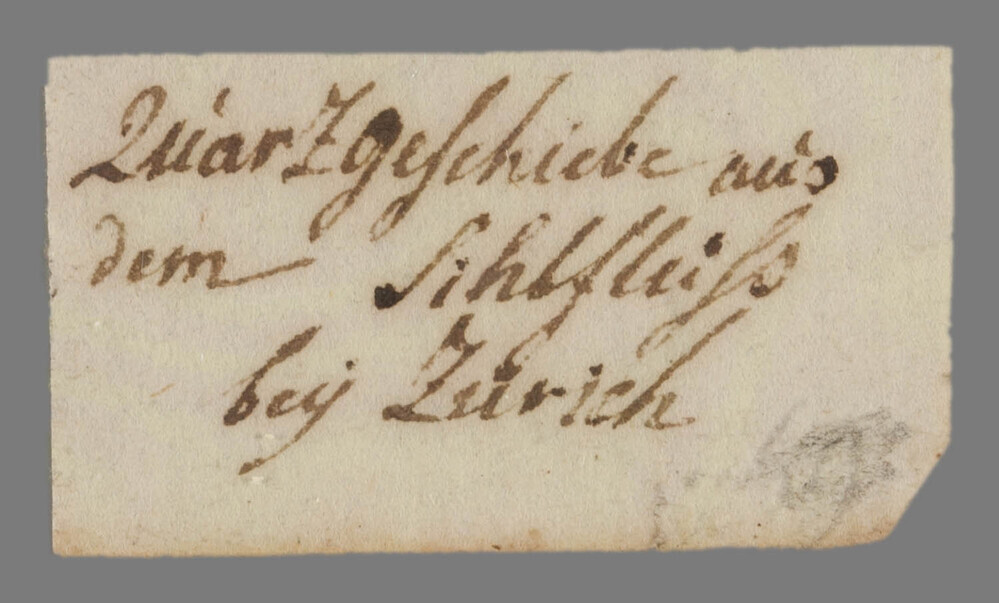 Quarzgeschiebe aus
dem Sihlfluß
bey Zürich